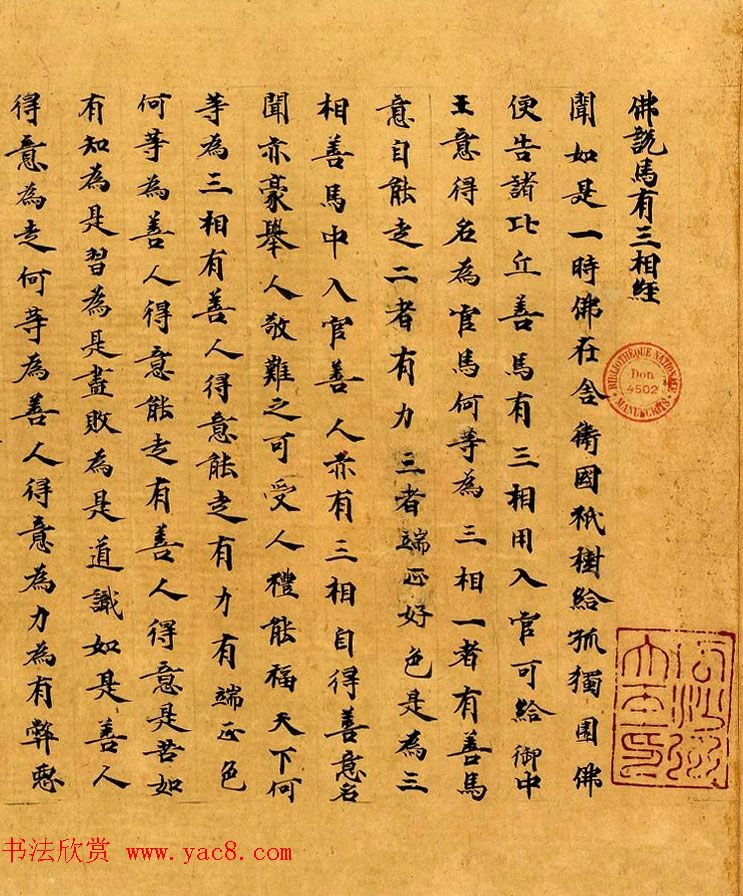 佛說馬有三相經
聞如是一時佛在舍衛國祇樹給孤獨園佛
便告諸比丘善馬有三相用入官可給御中
王意得名為官馬何等為三相一者有善馬
意自能走二者有力三者端正好色是為三
相善馬中入官善人亦有三相自得善意名
聞亦豪舉人敬難之可受人禮能福天下何
等為三相有善人得意能走有力有端正色
何等為善人得意能走有善人得意是苦如
有知為是習為是盡敗為是道識如是善人
得意為走何等為善人得意為力為有弊惡
BIBLIOTHÈQUE NATIONALE
Don.
4502
MANUSCRITS
书法欣赏 www.yac8.com